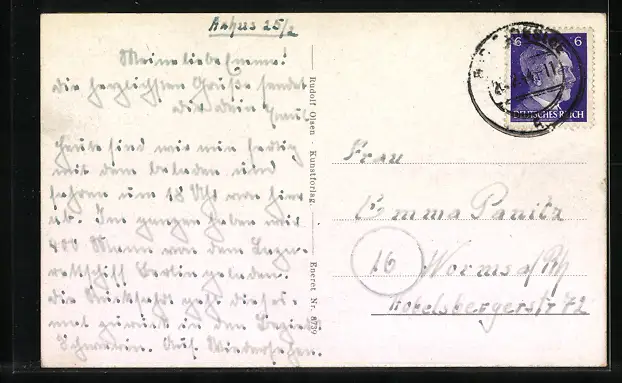 Aarhus 25/2
Meine liebe Emma!
die herzlichsten Grüße sendet
dir dein Paul
Heute sind wir nun fertig
mit dem beladen und
fahren um 18 Uhr von hier
ab. Im ganzen haben wir
400 Mann von dem Laza-
rettschiff Berlin geladen.
die Rückfahrt geht dieses-
mal zurück in den Bezirk
Schwerin. Auf Wiedersehen.
Rudolf Olsen - Kunstforlag.
Eneret Nr. 8739
6 6
DEUTSCHES REICH
Frau
Emma Panitz
16 Worms a/Rh
72